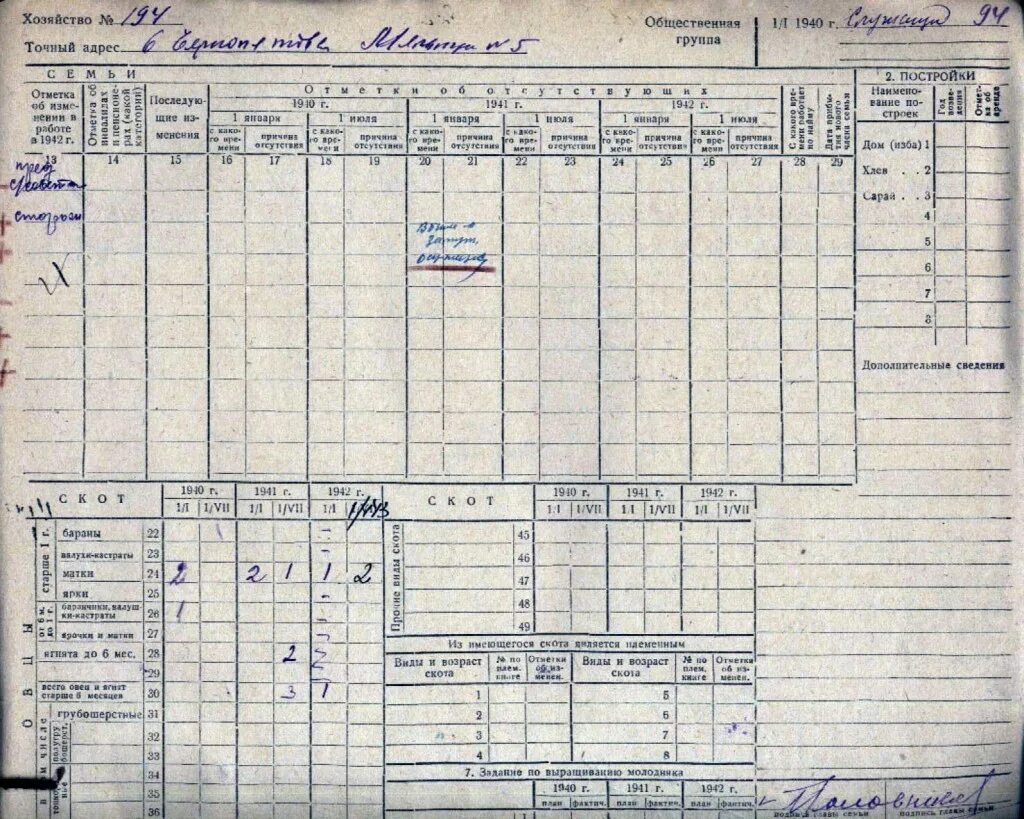 Хозяйство № 194
Общественная группа 1/I 1940 г. Служащий 94
Точный адрес 6
№ 5
СЕМЬИ
Отметка об изменении в работе в 1942 г.
Отметка об инвалидах и пенсионерах (какой категории)
Последующие изменения
Отметки об отсутствующих
1940 г. 1941 г. 1942 г.
1 января 1 июля 1 января 1 июля 1 января 1 июля
с какого времени причина отсутствия с какого времени причина отсутствия с какого времени причина отсутствия с какого времени причина отсутствия с какого времени причина отсутствия с какого времени причина отсутствия
С какого времени работает по найму
Дата прибытия нового члена семьи
13 14 15 16 17 18 19 20 21 22 23 24 25 26 27 28 29
пред
с/совета
сторож
2. ПОСТРОЙКИ
Наименование построек
Год возведения
Отметка об аренде
Дом (изба) 1
Хлев . . 2
Сарай . . 3
4
5
6
7
8
Дополнительные сведения
СКОТ
1940 г. 1941 г. 1942 г.
1/I 1/VII 1/I 1/VII 1/I
ОВЦЫ
старше 1 г.
бараны 22
валухи-кастраты 23
матки 24 2 2 1 1 2
ярки 25
от 6 м. до 1 г.
баранчики, валушки-кастраты 26 1
ярочки и матки 27
ягнята до 6 мес. 28 2
29
всего овец и ягнят старше 6 месяцев 30 3 1
в том числе
грубошерстные 31
полугрубошерст.
32
33
34
35
36
СКОТ
1940 г. 1941 г. 1942 г.
1/I 1/VII 1/I 1/VII 1/I 1/VII
Прочие виды скота
45
46
47
48
49
Из имеющегося скота является племенным
Виды и возраст скота № по плем. книге Отметки об измен. Виды и возраст скота № по плем. книге Отметки об измен.
1 5
2 6
3 7
4 8
7. Задание по выращиванию молодняка
1940 г. 1941 г. 1942 г.
план фактич. план фактич. план фактич.
подпись главы семьи подпись главы семьи